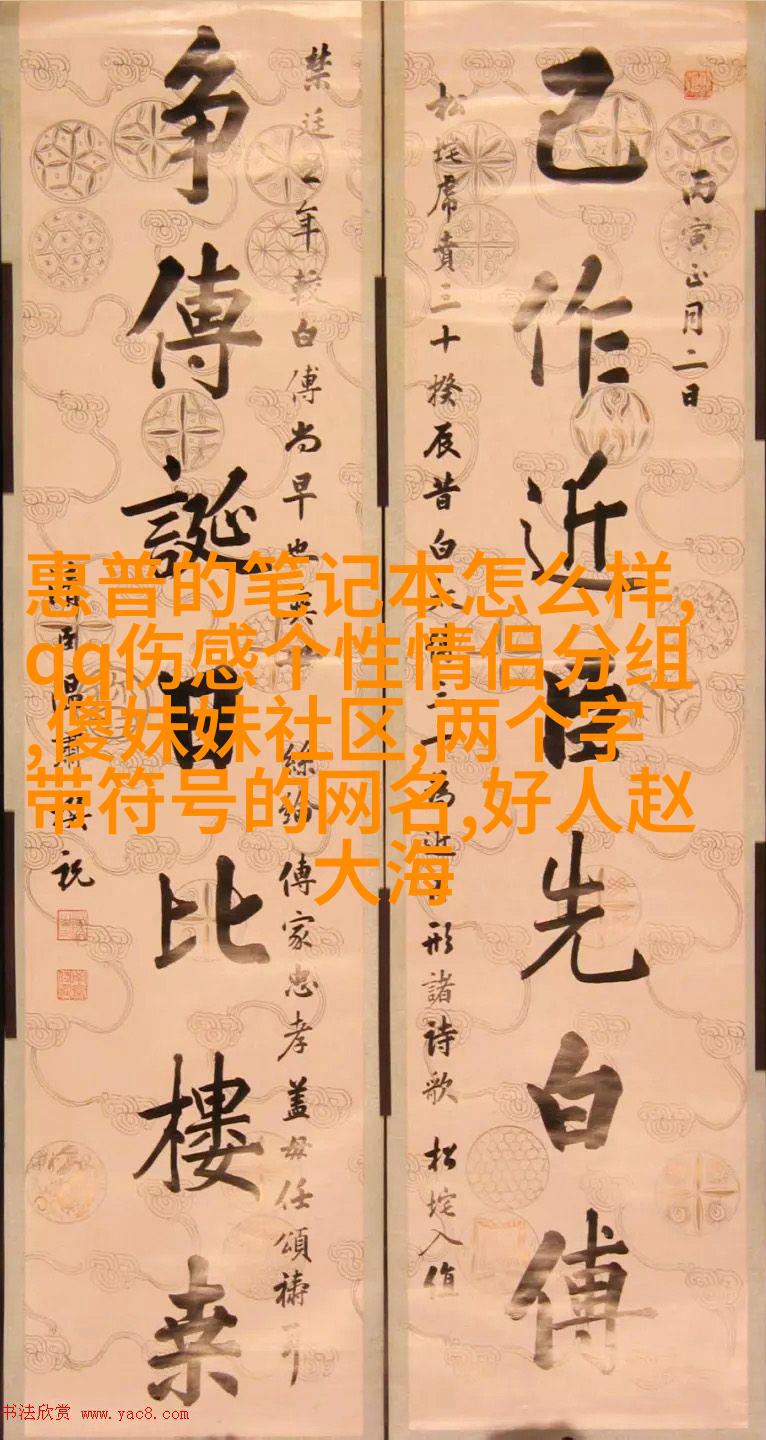 己作近臣先白傅
丙寅正月二日
松垞席賁三十揆辰昔白
為近
形諸詩歌 松垞入值
争傳誕日比樓桑
禁廷
年較白傅尚早也
絲綸
傳家忠孝蓋毋任頌禱
祝
惠普的笔记本怎么样,
qq伤感个性情侣分组
,傻妹妹社区,两个字
带符号的网名,好人赵
大海
书法欣赏 www.yac8.com